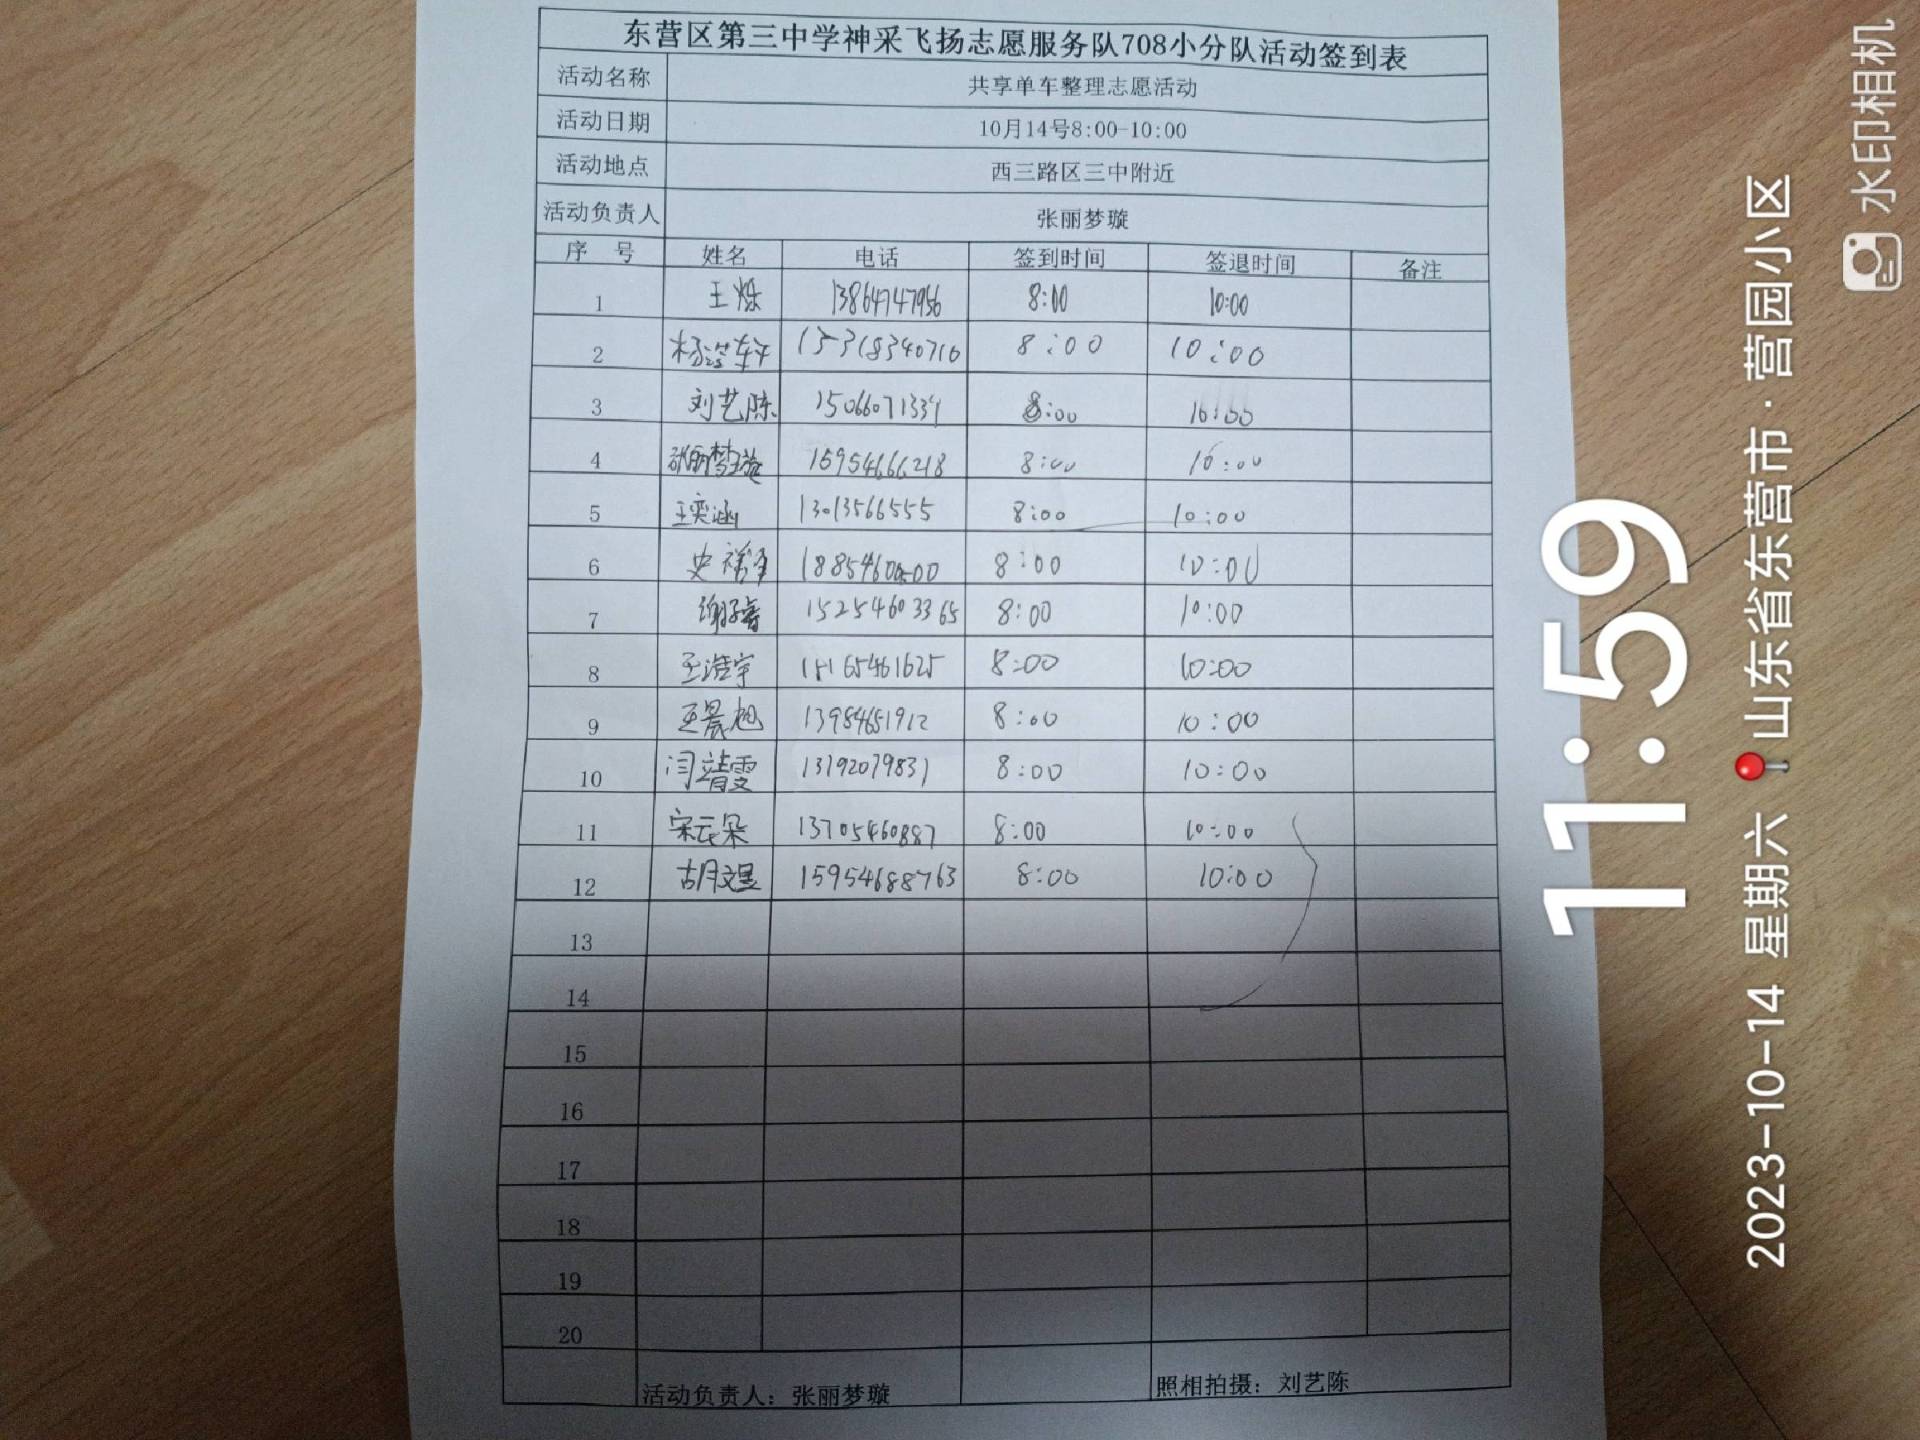 东营区第三中学神采飞扬志愿服务队708小分队活动签到表
活动名称 共享单车整理志愿活动
活动日期 10月14号8:00-10:00
活动地点 西三路区三中附近
活动负责人 张丽梦璇
序 号 姓名 电话 签到时间 签退时间 备注
1 王烁 13864747956 8:00 10:00
2 15318340710 8:00 10:00
3 刘艺陈 15066071339 8:00 10:00
4 张丽梦璇 15954666218 8:00 10:00
5 王奕涵 13013566555 8:00 10:00
6 8:00 10:00
7 15254603365 8:00 10:00
8 王浩宇 18165461625 8:00 10:00
9 王晨旭 13984651912 8:00 10:00
10 闫靖雯 13792079831 8:00 10:00
11 宋云朵 13705460887 8:00 10:00
12 胡文昱 15954688763 8:00 10:00
13
14
15
16
17
18
19
20
活动负责人：张丽梦璇 照相拍摄：刘艺陈
11:59
2023-10-14 星期六 山东省东营市·营园小区
水印相机